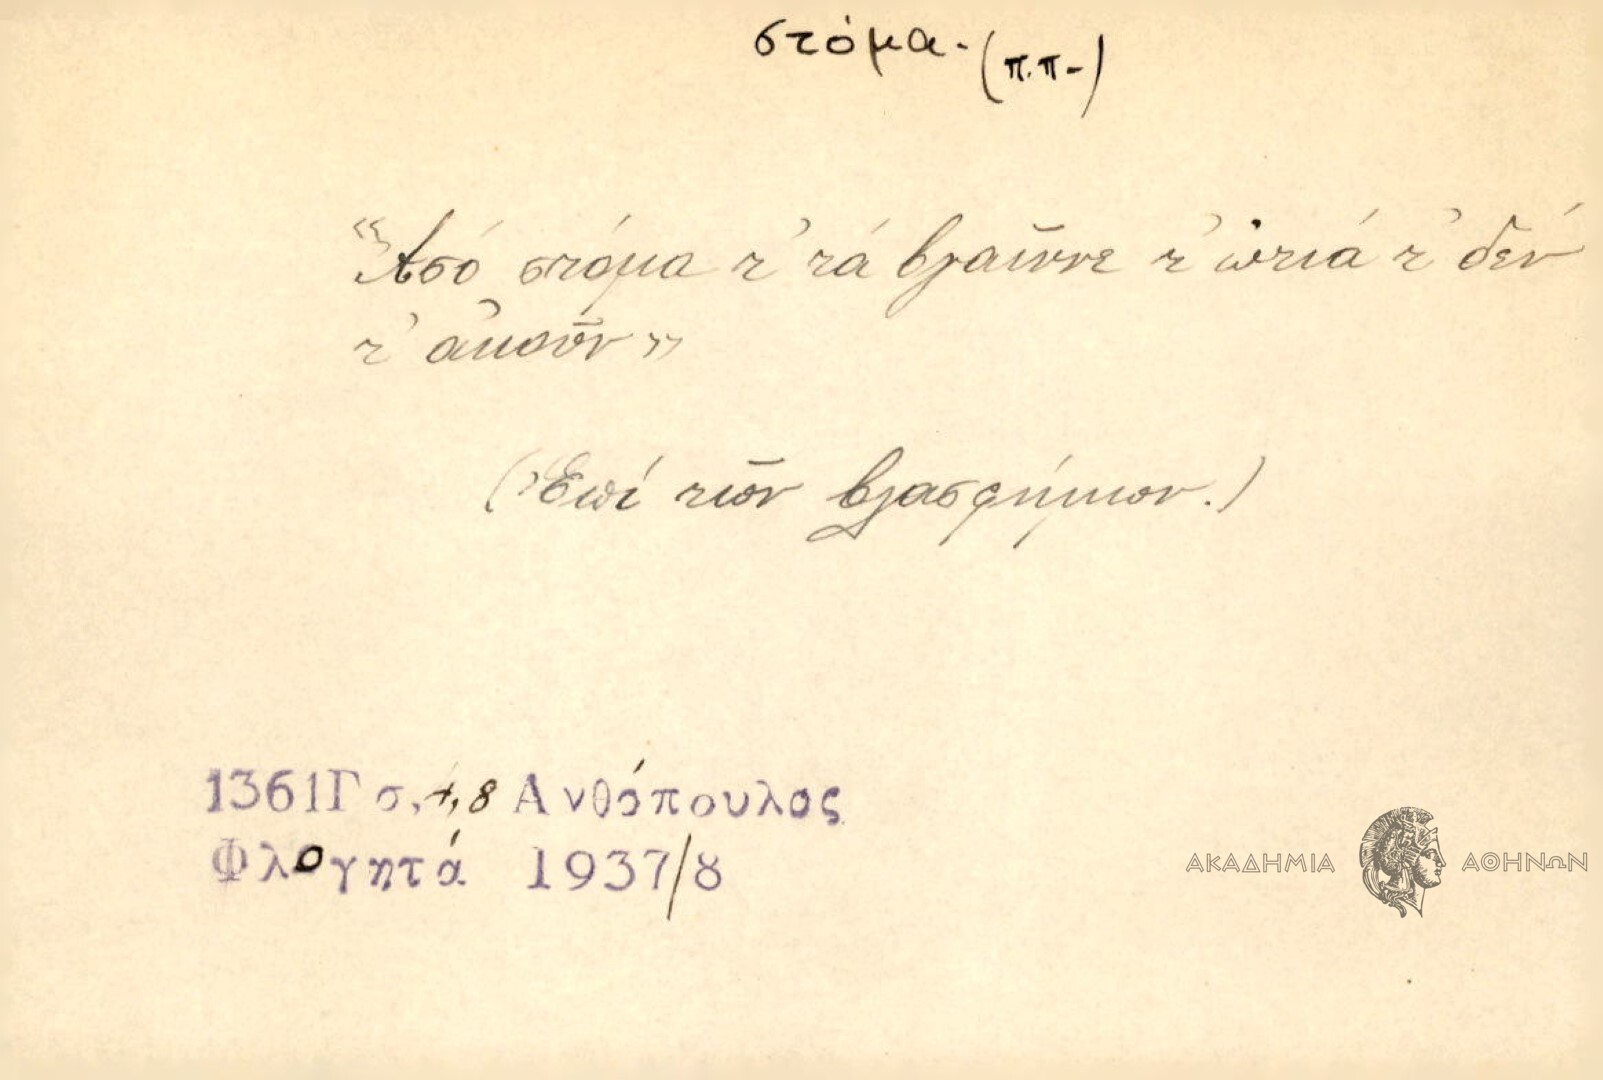 στόμα - (π.π-)
"Ἀσό στόμα τ' τά βγαῖννε τ' ὠτιά τ' δέν
τ' ἀκοῦν"
(Ἐπί τῶν βλασφήμων.)
1361Γ σ, 8 Ανθόπουλος
Φλογητά 1937/8
ΑΚΑΔΗΜΙΑ ΑΘΗΝΩΝ